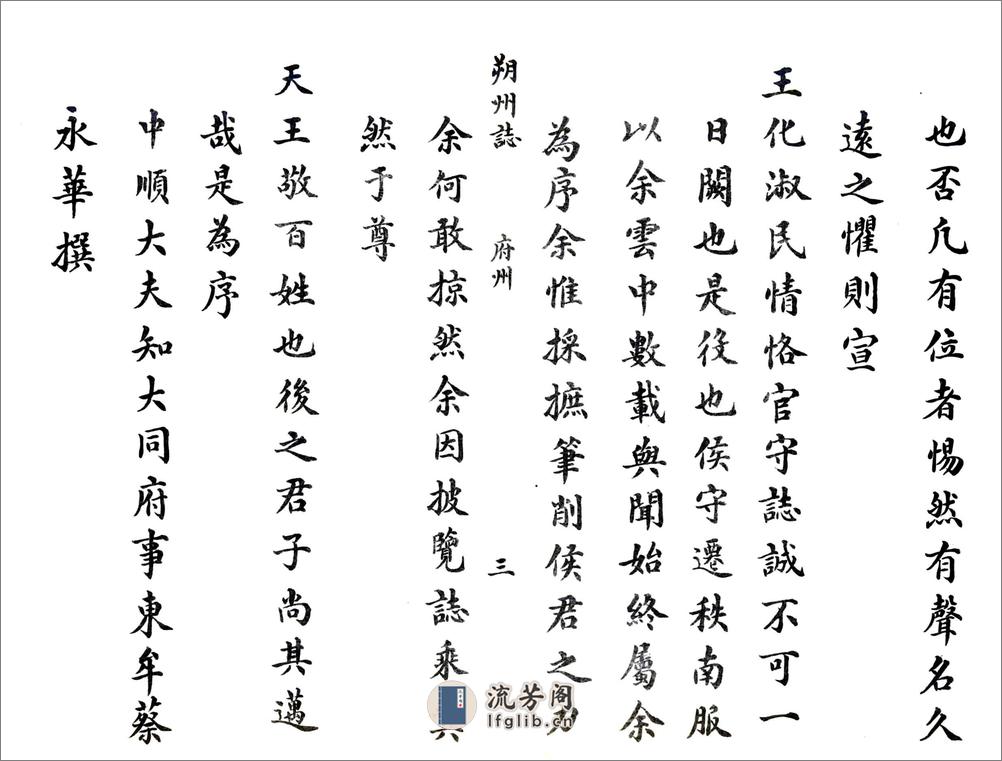 也否凢有位者惕然有聲名久
遠之懼則宣
王化淑民情恪官守誌誠不可一
日闕也是役也侯守遷秩南服
以余雲中數載與聞始終屬余
為序余惟採摭筆削侯君之
朔州誌 府州 三
余何敢掠然余因披覽誌乘
然于尊
天王敬百姓也後之君子尚其邁
哉是為序
中順大夫知大同府事東牟蔡
永華撰
流芳阁
lfglib.cn